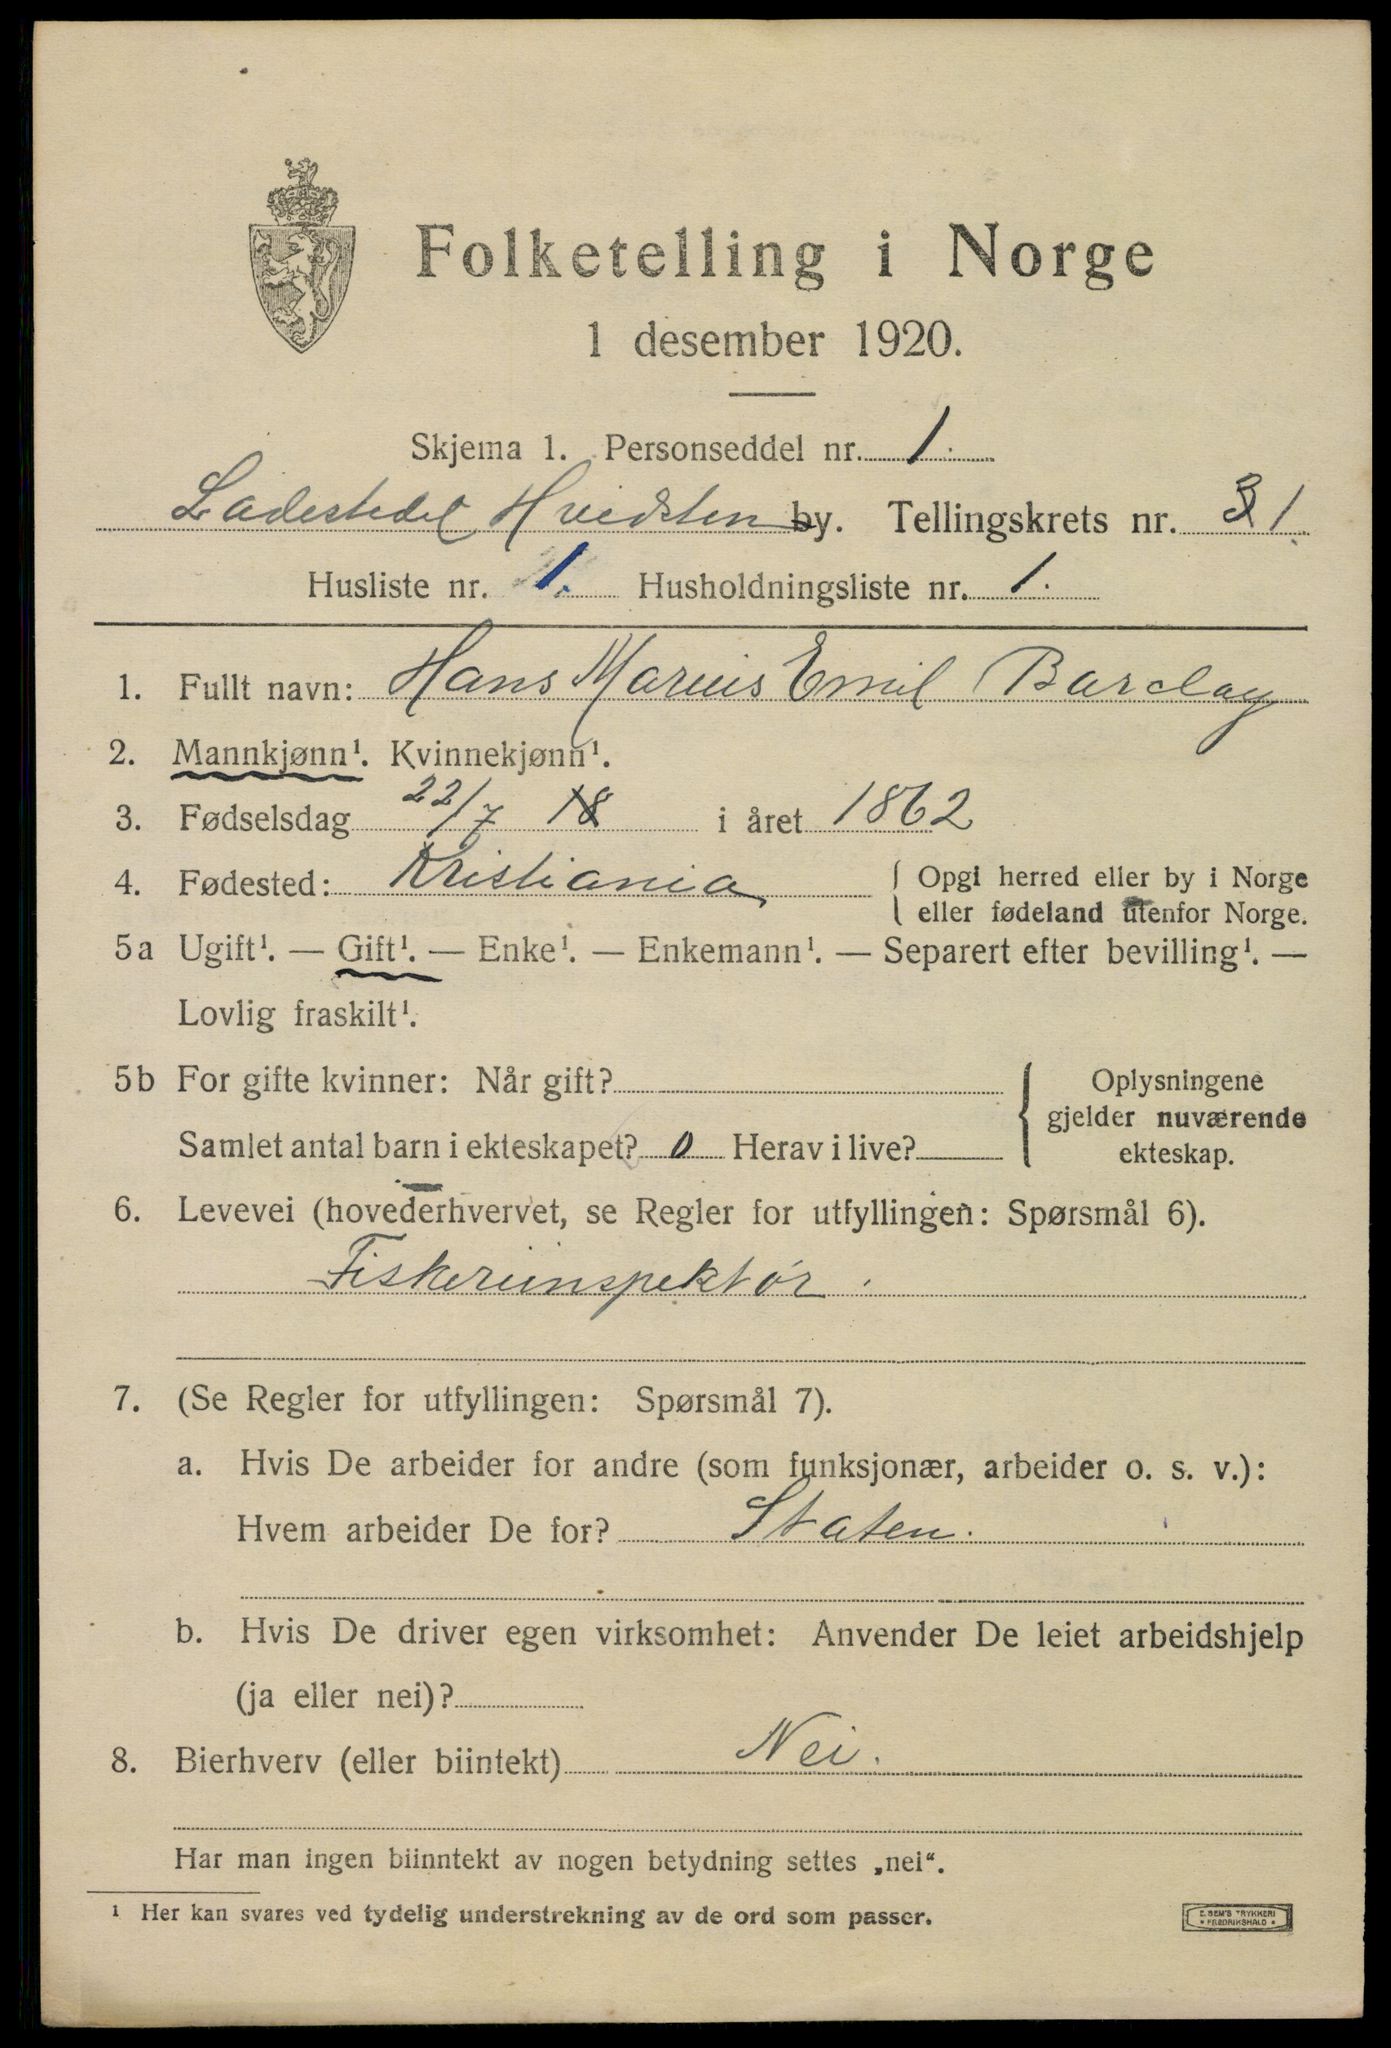 Folketelling i Norge
1 desember 1920.
Skjema 1. Personseddel nr. 1.
Ladestedet Hvidsten by. Tellingskrets nr. 1
Husliste nr. 1. Husholdningsliste nr. 1.
1. Fullt navn: Hans Marius Emil Barclay
2. Mannkjønn¹. Kvinnekjønn¹.
3. Fødselsdag 22/7 18 i året 1862
4. Fødested: Kristiania { Opgi herred eller by i Norge
eller fødeland utenfor Norge.
5a Ugift¹. — Gift¹. — Enke¹. — Enkemann¹. — Separert efter bevilling¹. —
Lovlig fraskilt¹.
5b For gifte kvinner: Når gift? { Oplysningene
gjelder nuværende
Samlet antal barn i ekteskapet? 0 Herav i live? ekteskap.
6. Levevei (hovederhvervet, se Regler for utfyllingen: Spørsmål 6).
Fiskeriinspektør.
7. (Se Regler for utfyllingen: Spørsmål 7).
a. Hvis De arbeider for andre (som funksjonær, arbeider o. s. v.):
Hvem arbeider De for? Staten.
b. Hvis De driver egen virksomhet: Anvender De leiet arbeidshjelp
(ja eller nei)?
8. Bierhverv (eller biintekt) Nei.
Har man ingen biinntekt av nogen betydning settes „nei“.
¹ Her kan svares ved tydelig understrekning av de ord som passer.
E. SEM'S TRYKKERI
* FREDRIKSHALD *